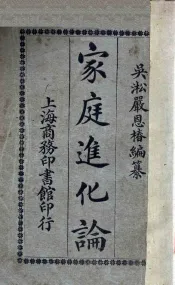 吳淞嚴恩椿編纂
家庭進化論
上海商務印書館印行